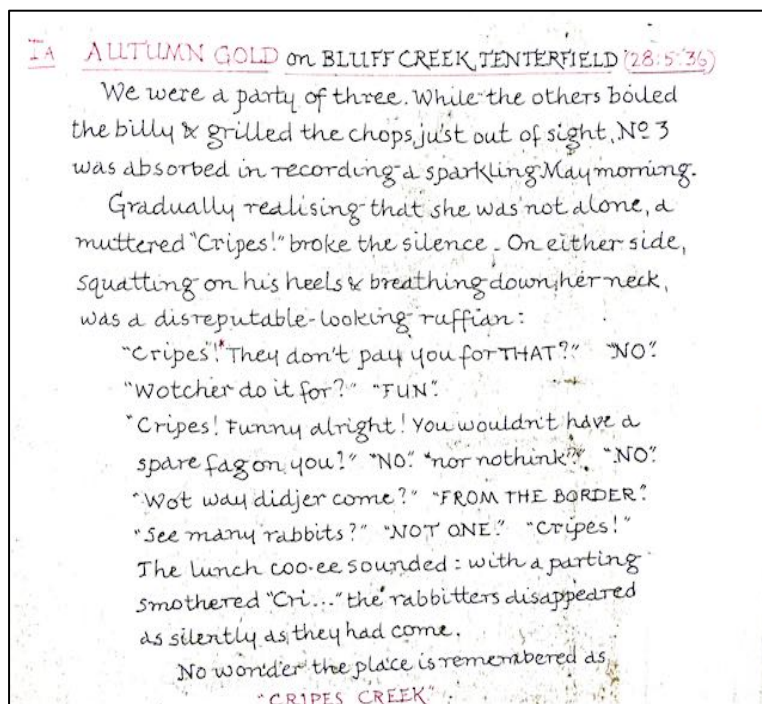 IA AUTUMN GOLD on BLUFF CREEK, TENTERFIELD (28:5:36)
We were a party of three. While the others boiled
the billy & grilled the chops, just out of sight, Nº 3
was absorbed in recording a sparkling May morning.
Gradually realising that she was not alone, a
muttered "Cripes!" broke the silence. On either side,
squatting on his heels & breathing down her neck,
was a disreputable-looking ruffian:
"Cripes"! They don't pay you for THAT?" "NO".
"Wotcher do it for?" "FUN".
"Cripes! Funny alright! You wouldn't have a
spare fag on you?" "NO". "nor nothink"? "NO".
"Wot way didjer come?" "FROM THE BORDER".
"See many rabbits?" "NOT ONE." "Cripes!"
The lunch coo-ee sounded: with a parting
smothered "Cri..." the rabbitters disappeared
as silently as they had come.
No wonder the place is remembered as
"CRIPES CREEK".